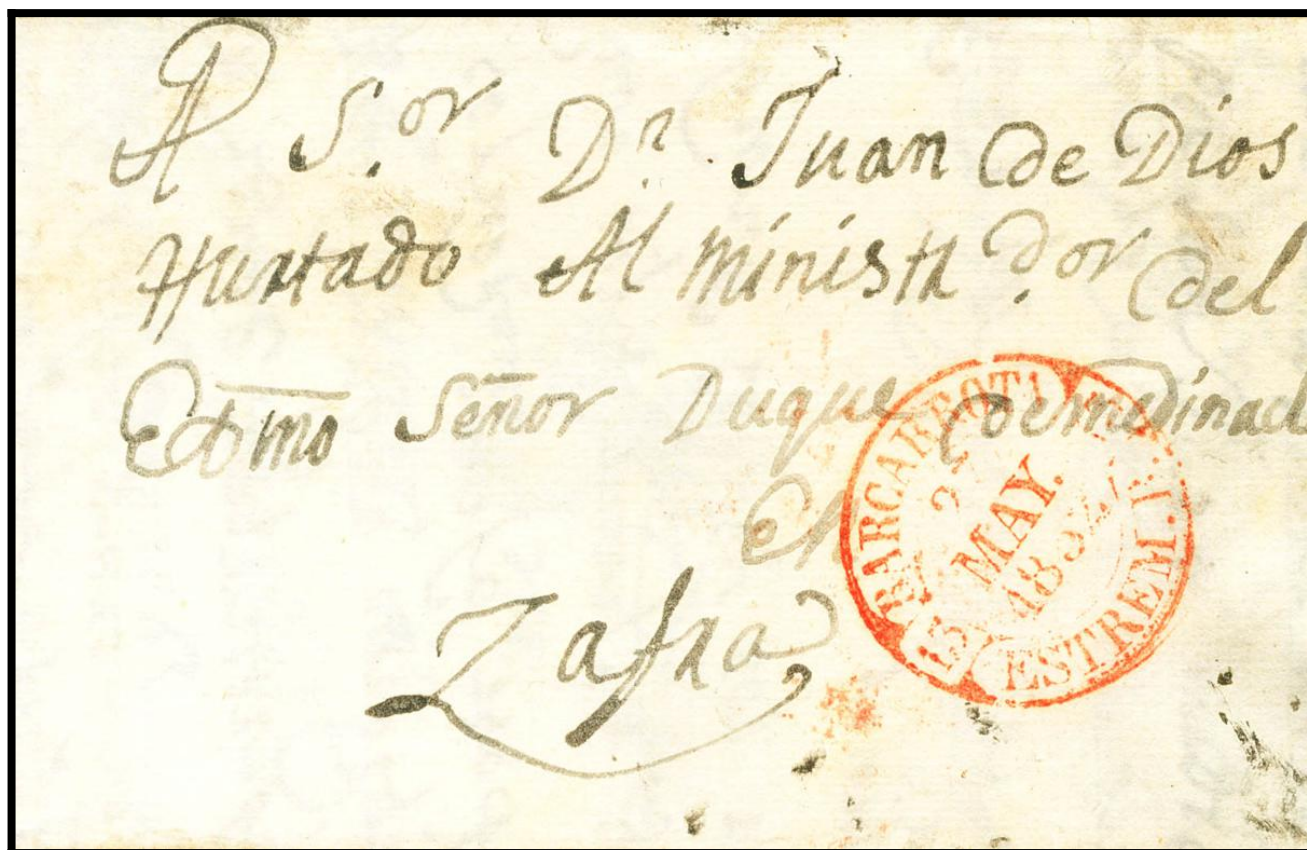 A S.or D.n Juan de Dios
Hurtado Alministr.dor del
Exmo Señor Duque de medinacl
En
Zafra,
BARCARROTA
MAY.
1852
13
ESTREM. B.